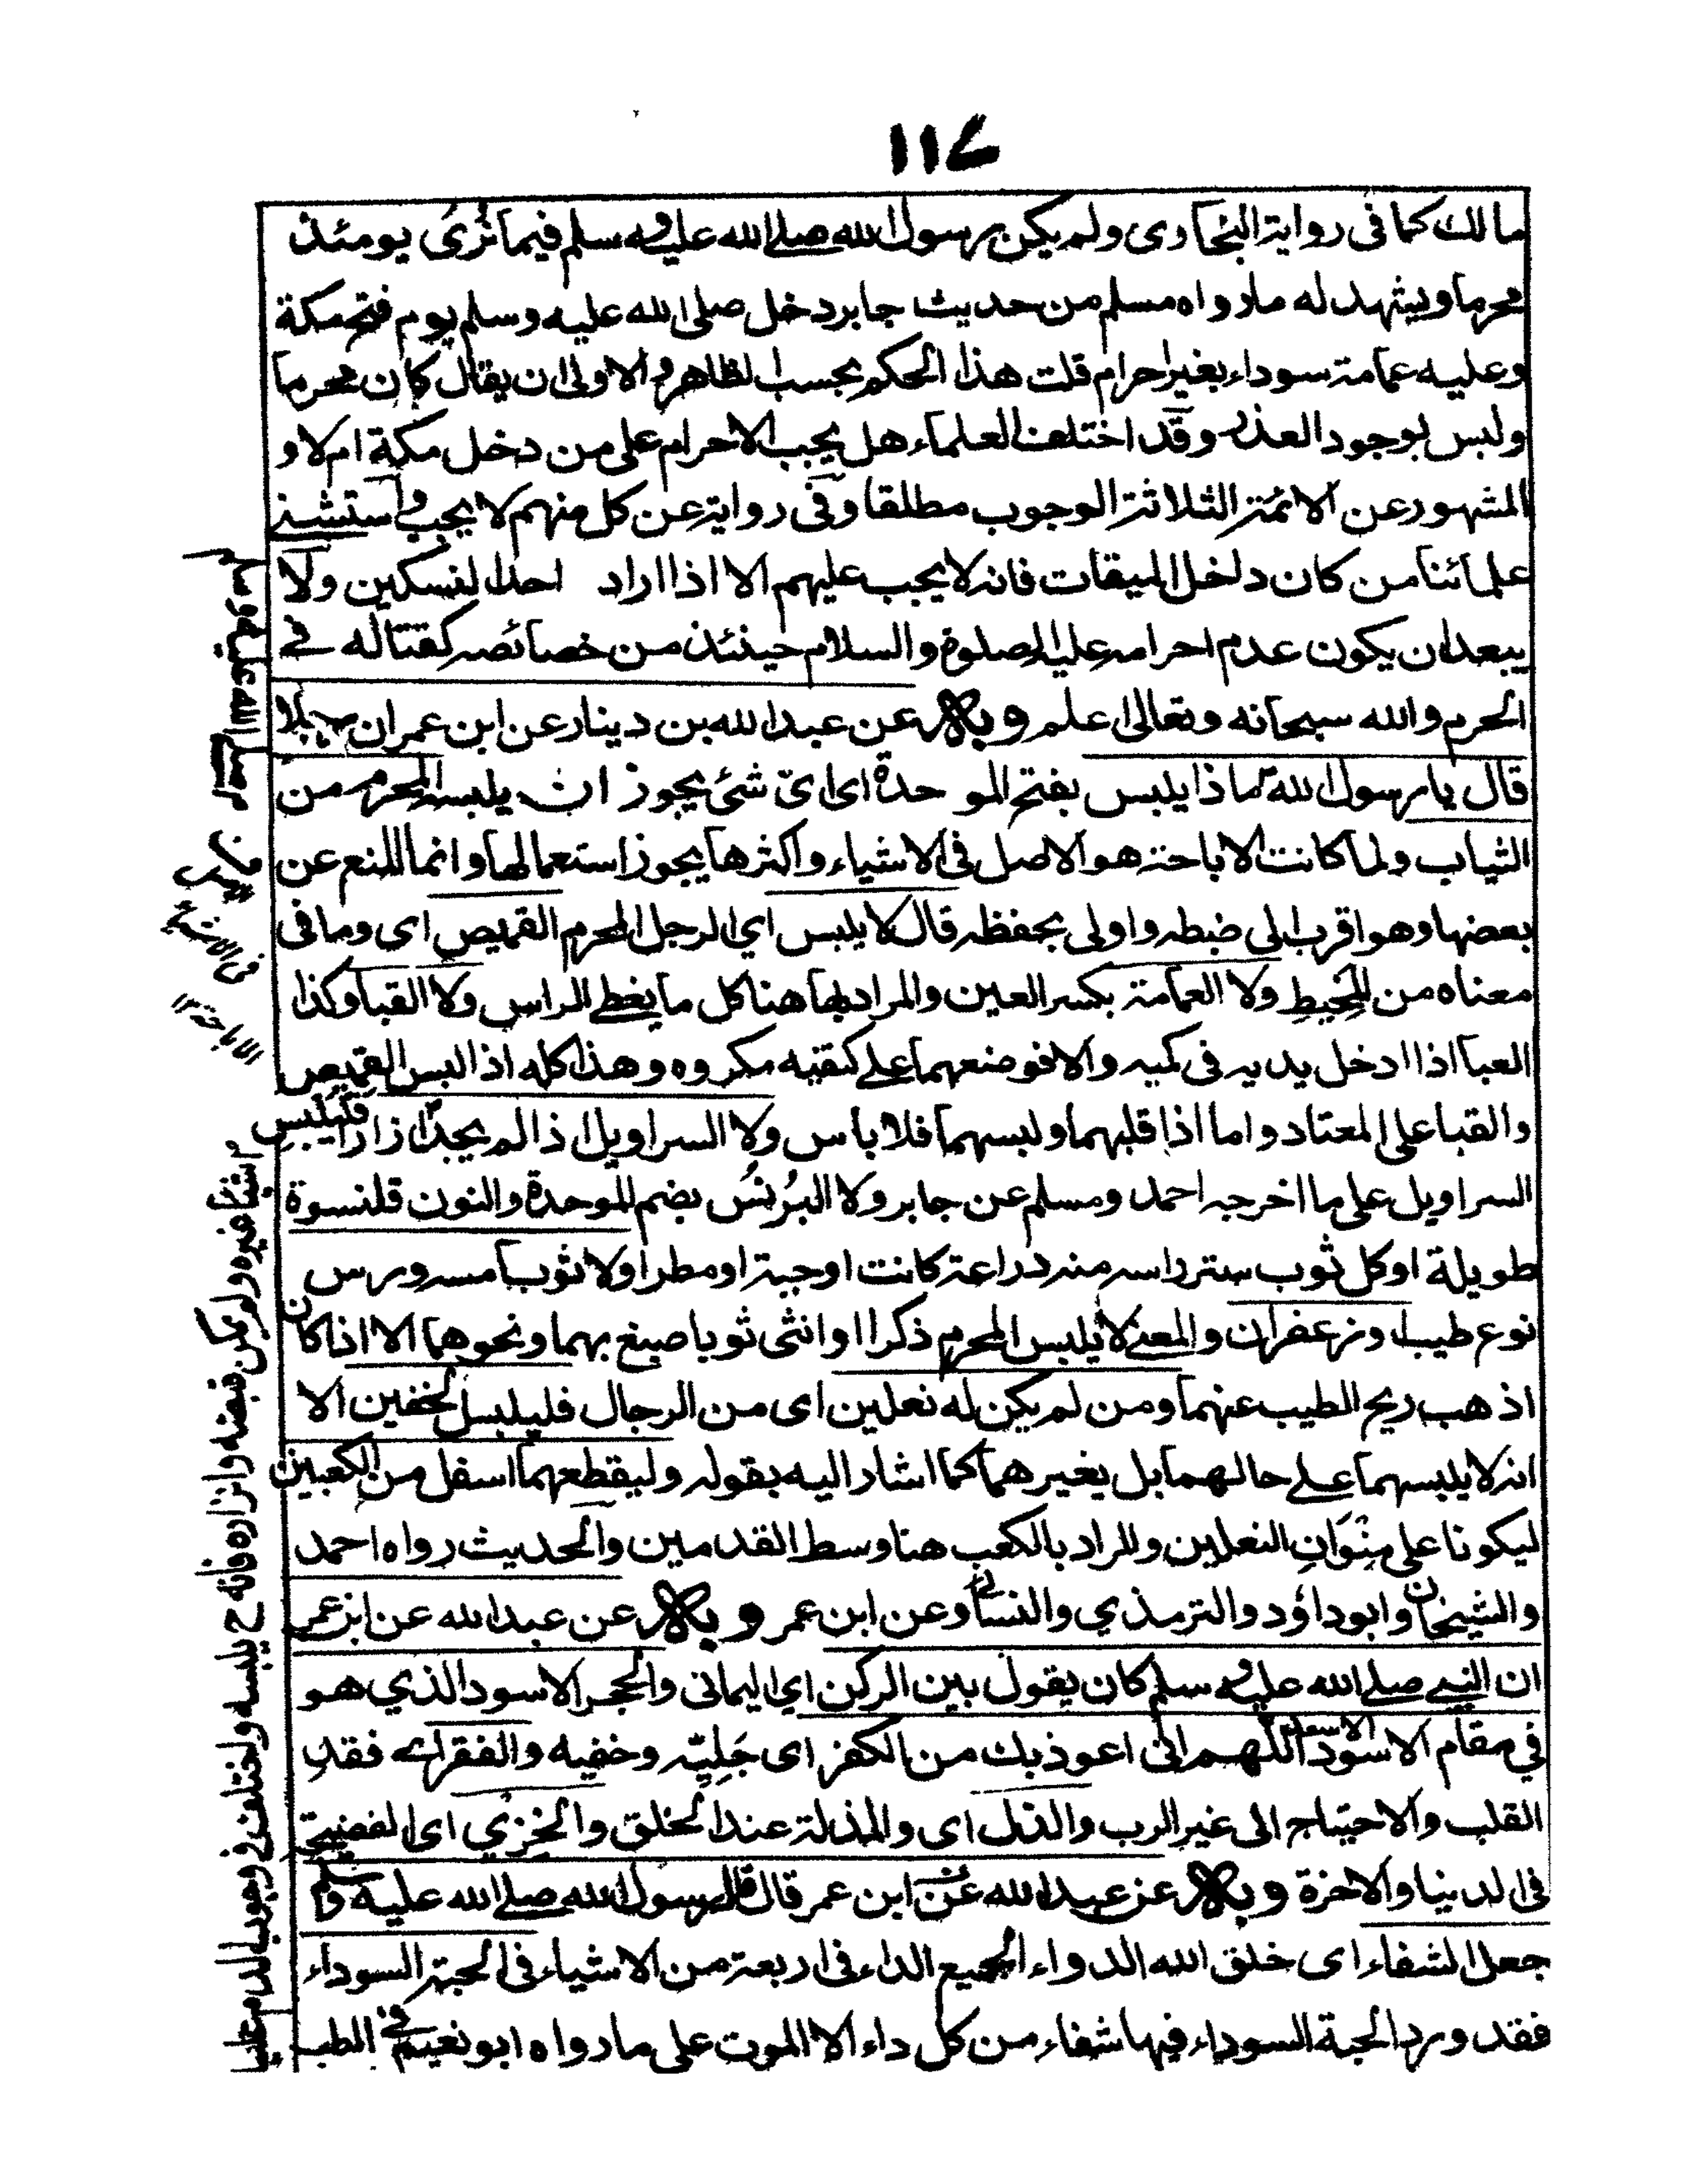 ۱۱۷
مالك كما فى رواية البخارى ولم يكن رسول الله صلے الله عليه وسلم فيما نُرىٰ يومئذ
محرما ويشهد له مارواه مسلم من حديث جابر دخل صلى الله عليه وسلم يوم فتح مكة
وعليه عمامة سوداء بغير احرام قلت هذا الحكم بحسب الظاهر والاولى ان يقال كان محرما
ولبس لوجود العذر وقد اختلف العلماء هل يجب الاحرام على من دخل مكة ام لا و
المشهور عن الائمة الثلاثة الوجوب مطلقا وفى رواية عن كل منهم لا يجب واستثنے
علمائنا من كان داخل الميقات فانه لا يجب عليهم الا اذا اراد احد النسكين ولا
يبعد ان يكون عدم احرامه عليه الصلوة والسلام حينئذ من خصائصه كقتاله فے
الحرم والله سبحانه وتعالى اعلم وبه عن عبد الله بن دينار عن ابن عمر ان رجلا
قال يا رسول الله ماذا يلبس بفتح الموحدة اى اىّ شئ يجوز ان يلبسه المحرم من
الثياب ولما كانت الاباحة هو الاصل فى الاشياء واكثرها يجوز استعمالها وانما المنع عن
بعضها وهو اقرب الى ضبطه واولى بحفظه قال لا يلبس اي الرجل المحرم القميص اى وما فى
معناه من المَخِيطِ ولا العمامة بكسر العين والمراد بها هنا كل ما يغطے الراس ولا القبا وكذا
العبا اذا ادخل يديه فى كميه والا فوضعهما علے كتفيه مكروه وهذا كله اذا لبس القميص
والقبا على المعتاد واما اذا قلبهما ولبسهما فلا باس ولا السراويل اذا لم يجد ازارا فليلبس
السراويل على ما اخرجه احمد ومسلم عن جابر ولا البُرنُسَ بضم الموحدة والنون قلنسوة
طويلة او كل ثوب ستر راسه منه دراعة كانت او جبة او مطرا ولا ثوبا مسه ورس
نوع طيب او زعفران والمعنے لا يلبس المحرم ذكرا او انثى ثوبا صبغ بهما ونحوهما الا اذا كان
اذهب ريح الطيب عنهما ومن لم يكن له نعلين اى من الرجال فليلبس الخفين الا
انه لا يلبسهما علے حالهما بل يغيرهما كما اشار اليه بقوله وليقطعهما اسفل من الكعبين
ليكونا على مِنْوَانِ النعلين والمراد بالكعب هنا وسط القدمين والحديث رواه احمد
والشيخان وابو داؤد والترمذي والنسائى وعن ابن عمر وبه عن عبد الله عن ابن عمر
ان النبے صلے الله عليه وسلم كان يقول بين الركن اي اليمانى والحجر الاسود الذي هو
في مقام الاسود الاسعد اللهم انى اعوذ بك من الكفر اى جَلِيّه وخفيه والفقر اے فقد
القلب والاحتياج الى غير الرب والذل اى والمذلة عند الخلق والخِزْي اى الفضيحة
فى الدنيا والآخرة وبه عن عبد الله عن ابن عمر قال قال رسول الله صلے الله عليه وسلم
جعل الشفاء اى خلق الله الدواء لجميع الداء فى اربعة من الاشياء فى الحبة السوداء
فقد ورد الحبة السوداء فيها شفاء من كل داء الا الموت على ما رواه ابو نعيم فى الطب